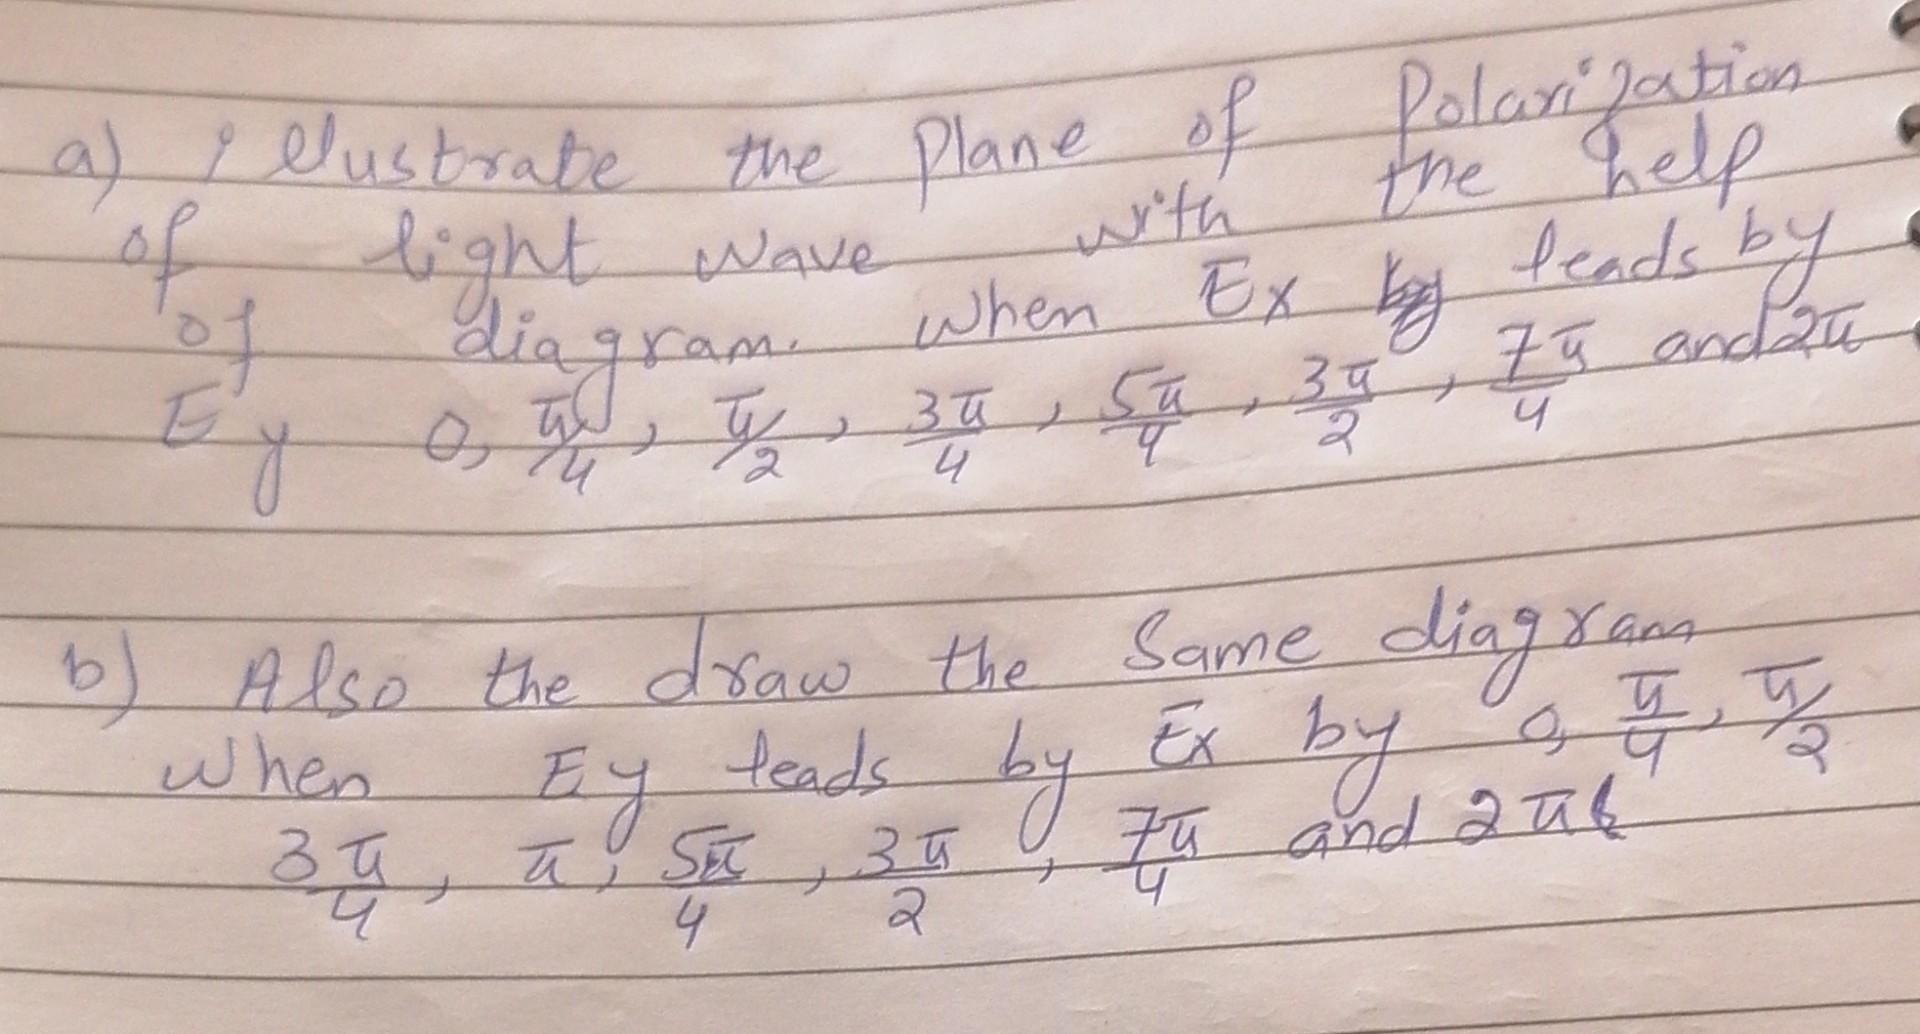 a) illustrate the Plane of Polarization
of light wave with the help
of diagram. when Ex leads by
Ey 0, π/4, π/2, 3π/4, 5π/4, 3π/2, 7π/4 and 2π
b) Also the draw the Same diagram
when Ey leads by Ex by 0, π/4, π/2
3π/4, π, 5π/4, 3π/2, 7π/4 and 2π